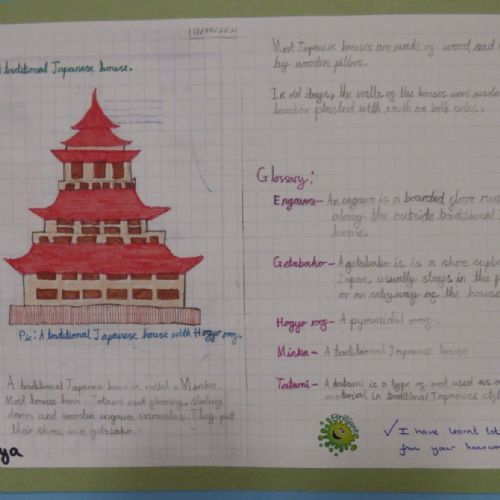 traditional Japanese house.
Pic: A traditional Japanese house with Hogyo roof.
A traditional Japanese house is called a Minka.
Most houses have Tatami mat flooring, sliding
doors and wooden engawa verandas. They put
their shoes in a getabako.
ya
Most Japanese houses are made of wood and
by wooden pillars.
In old days, the walls of the houses were made
bamboo plastered with earth on both sides.
Glossary:
Engawa- An engawa is a boarded floor
along the outside traditional
home.
Getabako- A getabako is is a shoe
Japan, usually stays in the
or an entryway of the house
Hogyo roof- A pyramidal roof.
Minka- A traditional Japanese house
Tatami- A tatami is a type of mat used as
material in traditional Japanese
Brilliant
✓ I have learnt
from your